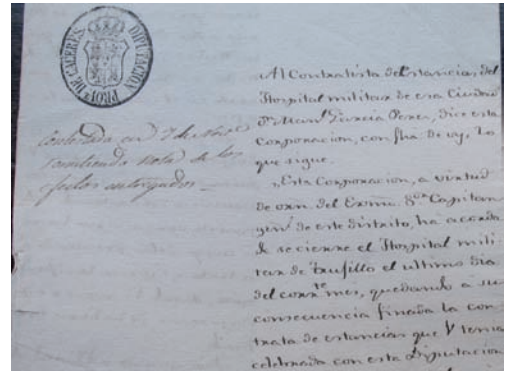 DIPUTACION PROV.L DE CACERES
Contestada en 7 de Nov.e
remitiendo nota de los
efectos entregados
Al Contratista de Estancias del
Hospital militar de esa Ciudad
D.n Man.l Garcia Perez, dice esta
Corporacion, con fha de oy, lo
que sigue.
"Esta Corporacion, a virtud
de orn. del Exmo. S.or Capitan
gen.l de este distrito, ha acorda
se cierre el Hospital mili-
tar de Trujillo el ultimo dia
del corr.te mes, quedando a su
consecuencia finada la con-
trata de estancias que V tenia
celebrada con esta Diputacion